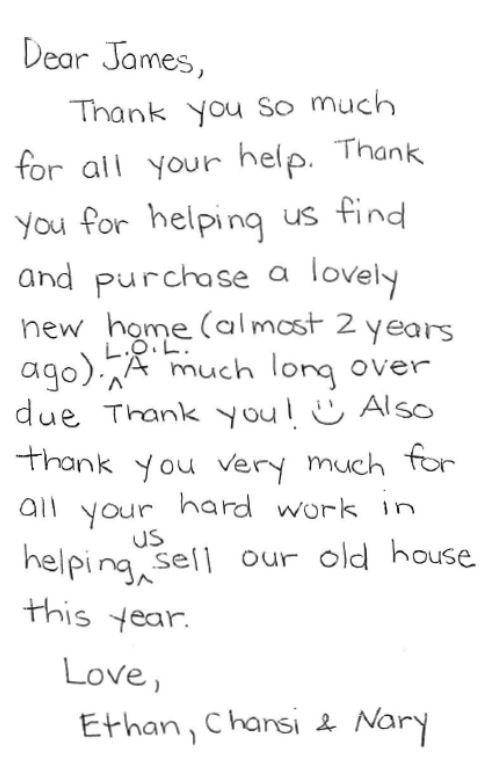 Dear James,
Thank you so much
for all your help. Thank
you for helping us find
and purchase a lovely
new home (almost 2 years
ago). L.O.L. A much long over
due Thank you! Also
thank you very much for
all your hard work in
helping us sell our old house
this year.
Love,
Ethan, Chansi & Nary